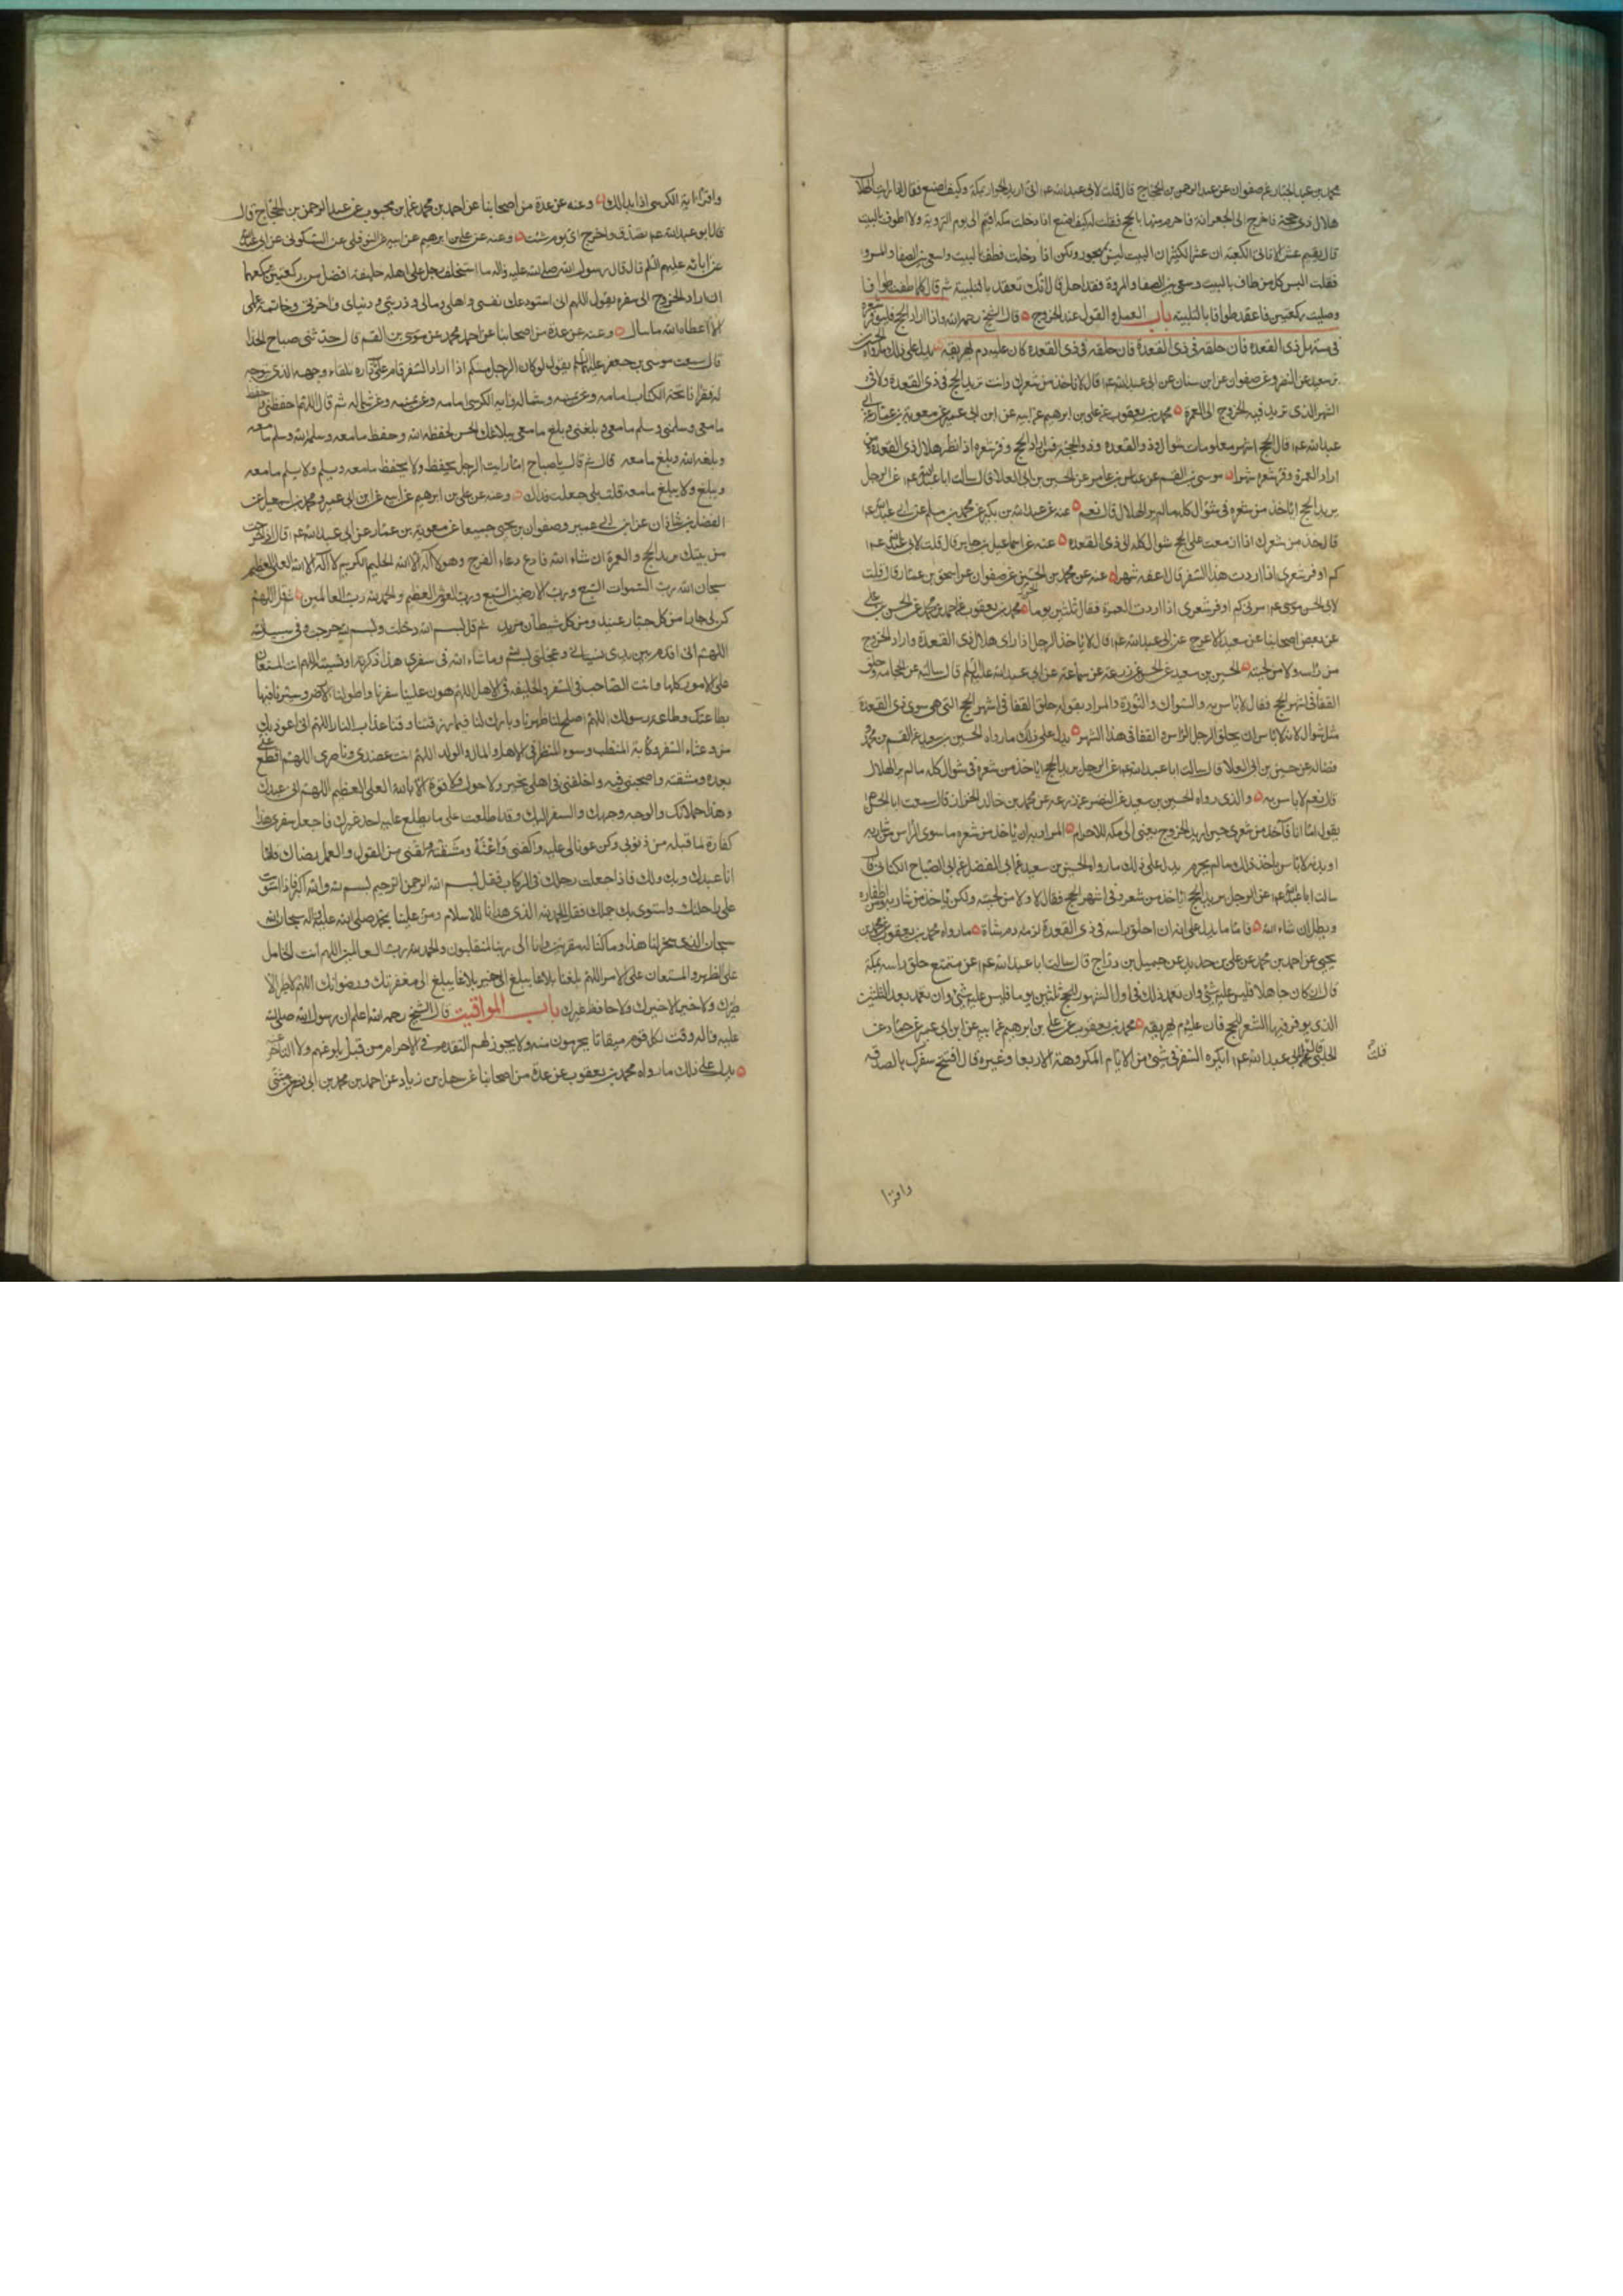 محمد بن عبد الجبار عن صفوان عن عبد الرحمن بن الحجاج قال قلت لابي عبد الله ع اني اريد الجوار بمكة وكيف اصنع فقال اذا رايت الهلال
هلال ذي حجة فاخرج الى الجعرانة فاحرم منها بالحج فقلت له كيف اصنع اذا دخلت مكة اقيم الى يوم التروية ولا اطوف بالبيت
قال تقيم عشرا لا تاتي الكعبة ان عشرا لكثير ان البيت ليس بمهجور ولكن اذا دخلت فطف بالبيت واسع بين الصفا والمروة
فقلت اليس كل من طاف بالبيت وسعى بين الصفا والمروة فقد احل قال انك تعقد بالتلبية ثم قال كلما طفت طوافا
وصليت ركعتين فاعقد طوافا بالتلبية باب العمل والقول عند الخروج قال الشيخ رحمه الله واذا اراد الحج فليوفر شعره
في مستهل ذي القعدة فان حلقه في ذي القعدة كان عليه دم يهريقه يدل على ذلك ما رواه الحسين
بن سعيد عن النضر وعن صفوان عن ابن سنان عن ابي عبد الله ع قال لا تاخذ من شعرك وانت تريد الحج في ذي القعدة ولا في
الشهر الذي تريد فيه الخروج الى العمرة محمد بن يعقوب عن علي بن ابرهيم عن ابيه عن ابن ابي عمير عن معوية بن عمار عن ابي
عبد الله ع قال الحج اشهر معلومات شوال وذو القعدة وذو الحجة فمن اراد الحج وفر شعره اذا نظر هلال ذي القعدة ومن
اراد العمرة وفر شعره شهرا موسى بن القسم عن عباس بن عامر عن الحسين بن ابي العلا قال سالت ابا عبد الله ع عن الرجل
يريد الحج اياخذ من شعره في شوال كله ما لم ير الهلال قال نعم عنه عن عبد الله بن بكير عن محمد بن مسلم عن ابي عبد الله ع
قال خذ من شعرك اذا ازمعت على الحج شوال كله الى ذي القعدة عنه عن اسماعيل بن جابر قال قلت لابي عبد الله ع
كم اوفر شعري اذا اردت هذا السفر قال اعفه شهرا عنه عن محمد بن الحسين عن صفوان عن اسحق بن عمار قال قلت
لابي الحسن موسى ع مرني كم اوفر شعري اذا اردت العمرة فقال ثلثين يوما محمد بن يعقوب عن احمد بن محمد عن الحسن بن علي
عن بعض اصحابنا عن سعيد الاعرج عن ابي عبد الله ع قال لا ياخذ الرجل اذا راى هلال ذي القعدة واراد الخروج
من راسه ولا من لحيته الحسين بن سعيد عن الحسن عن زرعة عن سماعة عن ابي عبد الله عليه السلم قال سالته عن الحجامة وحلق
القفا في اشهر الحج فقال لا باس به والسواك والنورة والمراد بقوله حلق القفا في اشهر الحج التي هي سوى ذي القعدة
مثل شوال لانه لا باس ان يحلق الرجل الراس والقفا في هذا الشهر يدل على ذلك ما رواه الحسين بن سعيد عن القسم بن محمد
فضالة عن حسين بن ابي العلا قال سالت ابا عبد الله ع عن الرجل يريد الحج اياخذ من شعره في شوال كله ما لم ير الهلال
قال نعم لا باس به والذي رواه الحسين بن سعيد عن النضر عن زرعة عن محمد بن خالد الخزاز قال سمعت ابا الحسن ع
يقول اما انا فآخذ من شعري حين اريد الخروج يعني الى مكة للاحرام المراد به ان ياخذ من شعره ما سوى الراس من شاربه
او بدنه لا باس باخذ ذلك ما لم يحرم يدل على ذلك ما رواه الحسين بن سعيد عن ابي الفضل عن ابي الصباح الكناني قال
سالت ابا عبد الله ع عن الرجل يريد الحج اياخذ من شعره في اشهر الحج فقال لا ولا من لحيته ولكن ياخذ من شاربه ومن اظفاره
وليطل ان شاء الله فاما ما يدل على انه ان احلق راسه في ذي القعدة لزمه دم شاة ما رواه محمد بن يعقوب عن محمد بن
يحيى عن احمد بن محمد عن علي بن حديد عن جميل بن دراج قال سالت ابا عبد الله ع عن متمتع حلق راسه بمكة
قال ان كان جاهلا فليس عليه شئ وان تعمد ذلك في اول الشهور للحج بثلثين يوما فليس عليه شئ وان تعمد بعد الثلثين
الذي يوفر فيها الشعر للحج فان عليه دم يهريقه محمد بن يعقوب عن علي بن ابرهيم عن ابيه عن ابن ابي عمير عن حماد عن
الحلبي قال قلت لابي عبد الله ع ايكره السفر في شئ من الايام المكروهة الاربعا وغيره قال افتتح سفرك بالصدقة
قلت
واقرا
واقرا اية الكرسي اذا بدا لك وعنه عن عدة من اصحابنا عن احمد بن محمد عن ابن محبوب عن عبد الرحمن بن الحجاج قال
قال ابو عبد الله ع تصدق واخرج اي يوم شئت وعنه عن علي بن ابرهيم عن ابيه عن النوفلي عن السكوني عن ابي عبد الله
عن ابائه عليهم السلم قال قال رسول الله صلى الله عليه واله ما استخلف رجل على اهله خليفة افضل من ركعتين يركعهما
ان اراد الخروج الى سفره يقول اللهم اني استودعك نفسي واهلي ومالي وذريتي ودنياي واخرتي وخاتمة عملي
الا اعطاه الله ما سال وعنه عن عدة من اصحابنا عن احمد بن محمد عن موسى بن القسم قال حدثني صباح الحذا
قال سمعت موسى بن جعفر عليه السلم يقول لو كان الرجل منكم اذا اراد السفر قام على باب داره تلقاء وجهه الذي يتوجه
له فقرا فاتحة الكتاب امامه وعن يمينه وشماله واية الكرسي امامه وعن يمينه وعن شماله ثم قال اللهم احفظني واحفظ
ما معي وسلمني وسلم ما معي وبلغني وبلغ ما معي ببلاغك الحسن لحفظه الله وحفظ ما معه وسلمه الله وسلم ما معه
وبلغه الله وبلغ ما معه قال ثم قال يا صباح اما رايت الرجل يحفظ ولا يحفظ ما معه ويسلم ولا يسلم ما معه
ويبلغ ولا يبلغ ما معه قلت بلى جعلت فداك وعنه عن علي بن ابرهيم عن ابيه عن ابن ابي عمير ومحمد بن اسمعيل عن
الفضل بن شاذان عن ابن ابي عمير وصفوان بن يحيى جميعا عن معوية بن عمار عن ابي عبد الله ع قال اذا خرجت
من بيتك تريد الحج والعمرة ان شاء الله فادع دعاء الفرج وهو لا اله الا الله الحليم الكريم لا اله الا الله العلي العظيم
سبحان الله رب السموات السبع ورب الارضين السبع ورب العرش العظيم والحمد لله رب العالمين ثم قل اللهم
كن لي جارا من كل جبار عنيد ومن كل شيطان مريد ثم قل بسم الله دخلت وبسم الله خرجت وفي سبيل الله
اللهم اني اقدم بين يدي نسياني وعجلتي بسم الله وما شاء الله في سفري هذا ذكرته او نسيته اللهم انت المستعان
على الامور كلها وانت الصاحب في السفر والخليفة في الاهل اللهم هون علينا سفرنا واطو لنا الارض وسيرنا فيها
بطاعتك وطاعة رسولك اللهم اصلح لنا ظهرنا وبارك لنا فيما رزقتنا وقنا عذاب النار اللهم اني اعوذ بك
من وعثاء السفر وكآبة المنقلب وسوء المنظر في الاهل والمال والولد اللهم انت عضدي وناصري اللهم اقطع عني
بعده ومشقته واصحبني فيه واخلفني في اهلي بخير ولا حول ولا قوة الا بالله العلي العظيم اللهم اني عبدك
وهذا حملانك والوجه وجهك والسفر اليك وقد اطلعت على ما لم يطلع عليه احد غيرك فاجعل سفري هذا
كفارة لما قبله من ذنوبي وكن عونا لي عليه واكفني وعثه ومشقته ولقني من القول والعمل رضاك فانما
انا عبدك وبك ولك فاذا جعلت رجلك في الركاب فقل بسم الله الرحمن الرحيم بسم الله والله اكبر فاذا استويت
على راحلتك واستوى بك محملك فقل الحمد لله الذي هدانا للاسلام ومن علينا بمحمد صلى الله عليه واله سبحان الله
سبحان الذي سخر لنا هذا وما كنا له مقرنين وانا الى ربنا لمنقلبون والحمد لله رب العالمين اللهم انت الحامل
على الظهر والمستعان على الامر اللهم بلغنا بلاغا يبلغ الى خير بلاغا يبلغ الى مغفرتك ورضوانك اللهم لا طير الا
طيرك ولا خير الا خيرك ولا حافظ غيرك باب المواقيت قال الشيخ رحمه الله اعلم ان رسول الله صلى الله
عليه واله وقت لكل قوم ميقاتا يحرمون منه ولا يجوز لهم التقدم في الاحرام من قبل بلوغهم ولا التاخر عنه
يدل على ذلك ما رواه محمد بن يعقوب عن عدة من اصحابنا عن سهل بن زياد عن احمد بن محمد بن ابي نصر عن مثنى